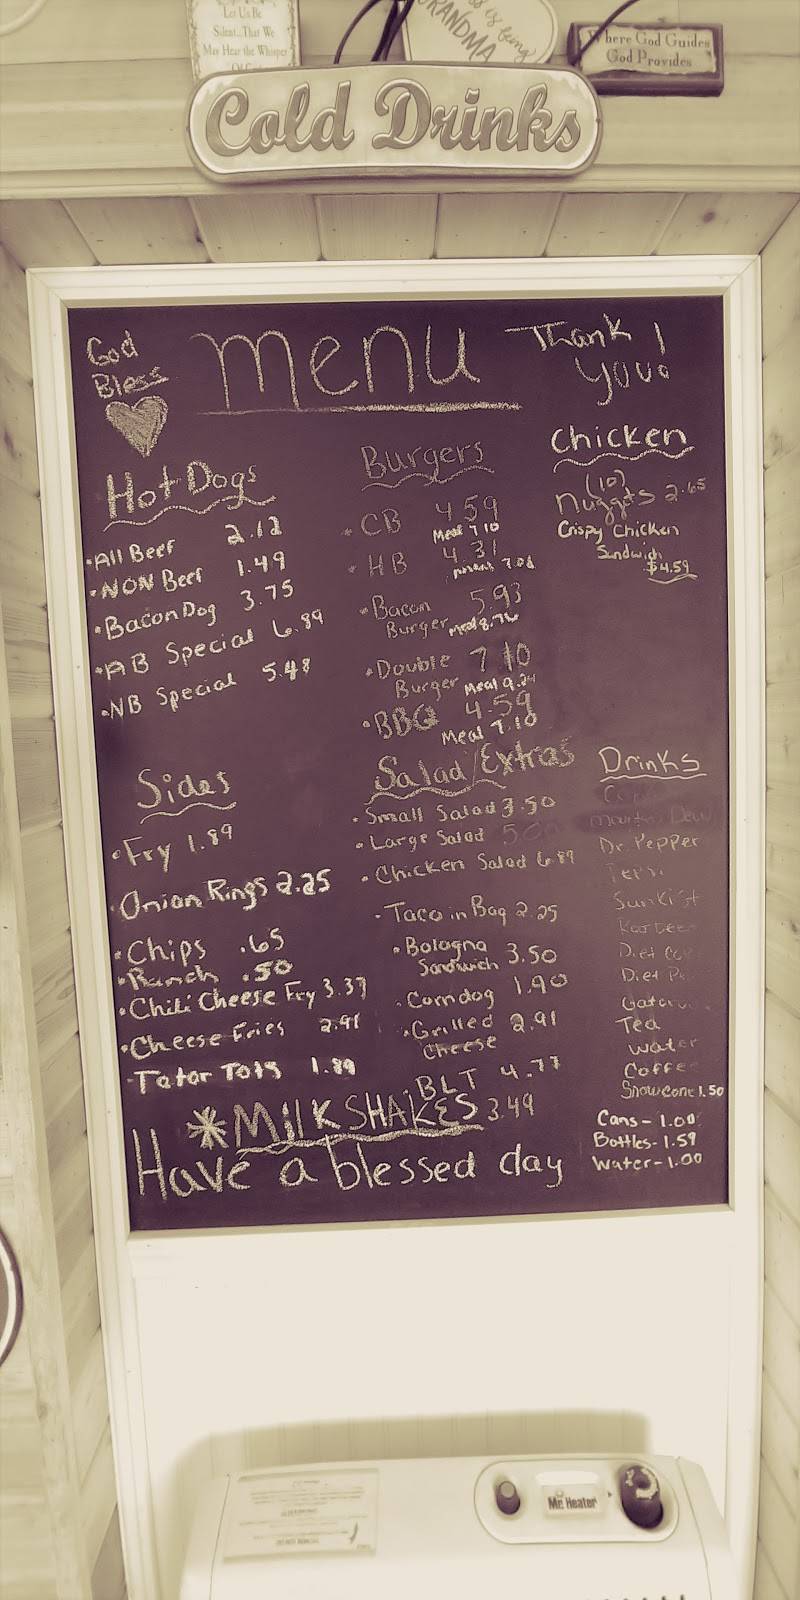 Let Us Be
Silent...That We
May Hear the Whisper
is being
GRANDMA
Where God Guides
God Provides
Cold Drinks
God
Bless
Menu
Thank
You!
Hot Dogs
•All Beef 2.12
•NON Beef 1.49
•Bacon Dog 3.75
•AB Special 6.89
•NB Special 5.48
Burgers
•CB 4.59
Meal 7.10
•HB 4.31
•Bacon 5.93
Burger
•Double 7.10
Burger Meal 9.24
•BBQ 4.59
Meal 7.10
Chicken
(10)
Nuggets 2.65
Crispy Chicken
Sandwich
$4.59
Sides
•Fry 1.89
•Onion Rings 2.25
•Chips .65
•Ranch .50
•Chili Cheese Fry 3.37
•Cheese Fries 2.91
-Tator Tots 1.89
Salad/Extras
•Small Salad 3.50
•Large Salad
•Chicken Salad 6.89
•Taco in Bag 2.25
•Bologna
Sandwich 3.50
•Corndog 1.90
•Grilled 2.91
Cheese
•BLT 4.77
*MilKSHAKES 3.49
Have a blessed day
Drinks
Dr. Pepper
Pepsi
Sunkist
Diet
Diet
Tea
Water
Coffee
Snowcone 1.50
Cans-1.00
Bottles-1.59
Water-1.00
Mr. Heater